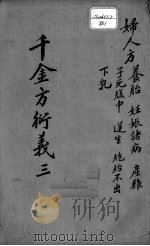 婦人方 養胎 妊娠諸病 產難
子死腹中 逆生 胞胎不出
下乳
千金方衍義三